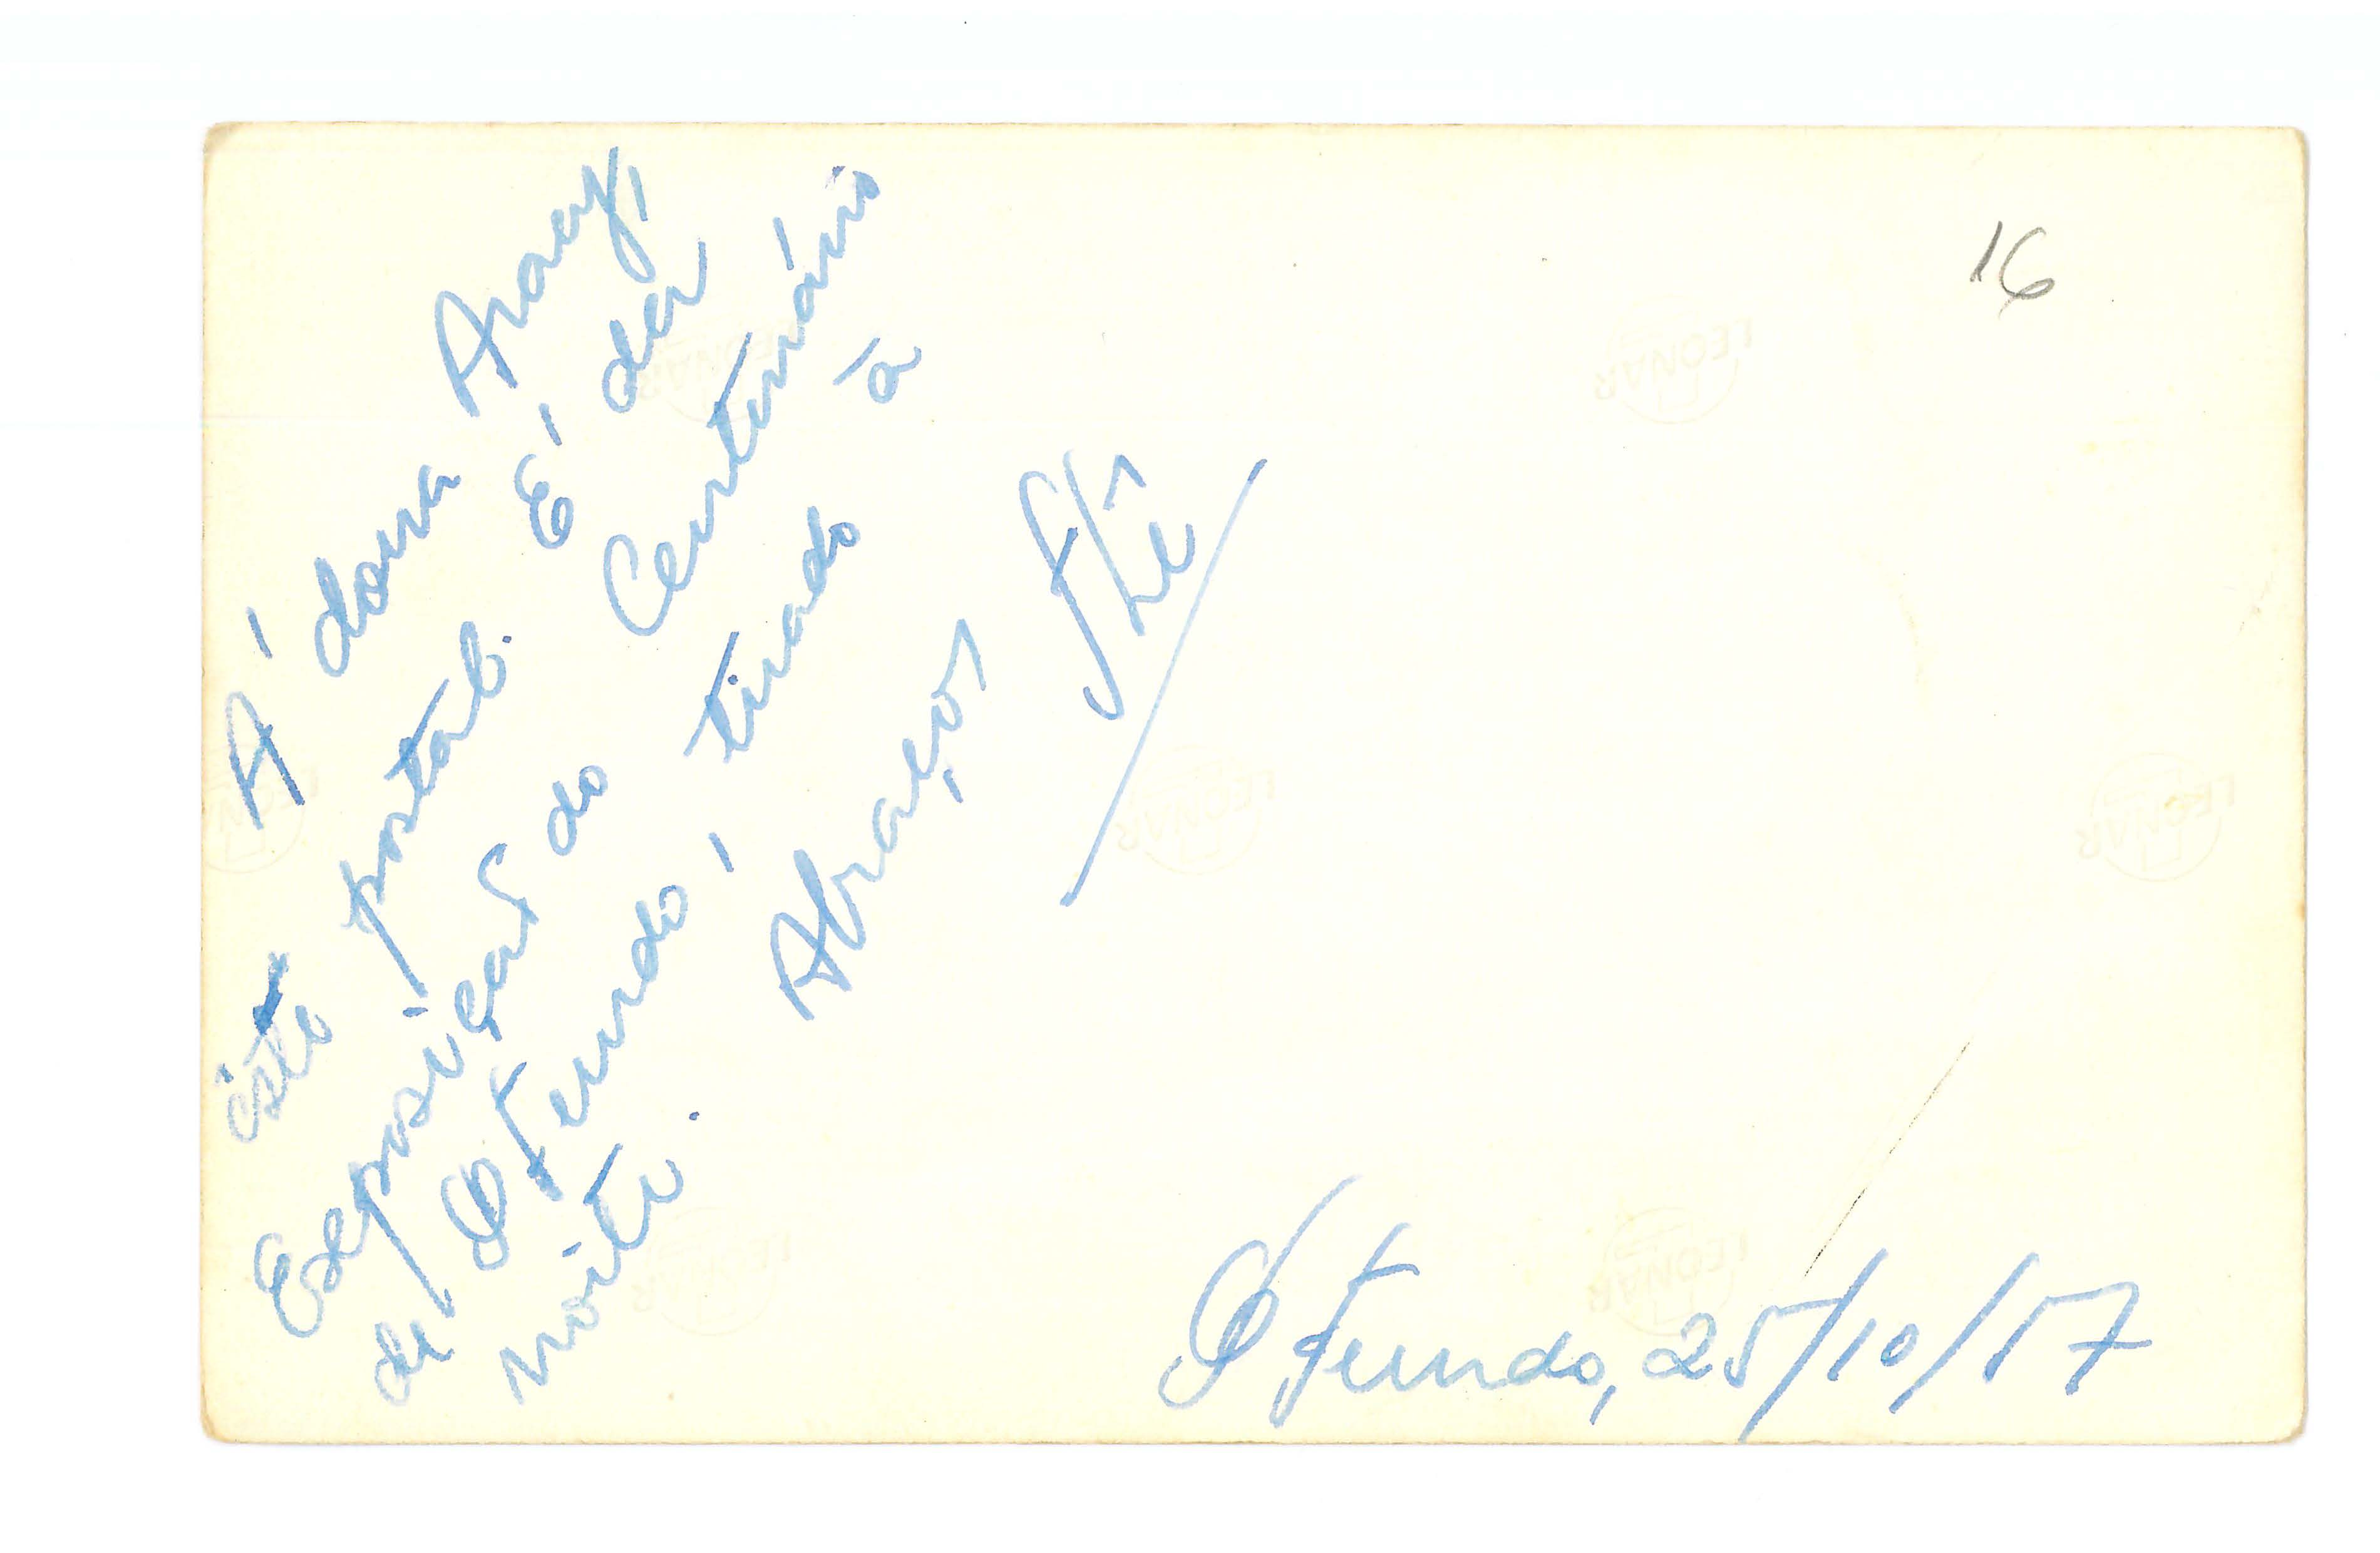 16
À dona Aracy,
êste postal. É da
Exposição do Centenário
de P. Fundo, tirado à
noite.
Abraços
P. Fundo, 25/10/57
LEONAR
LEONAR
LEONAR
LEONAR
LEONAR
LEONAR
LEONAR